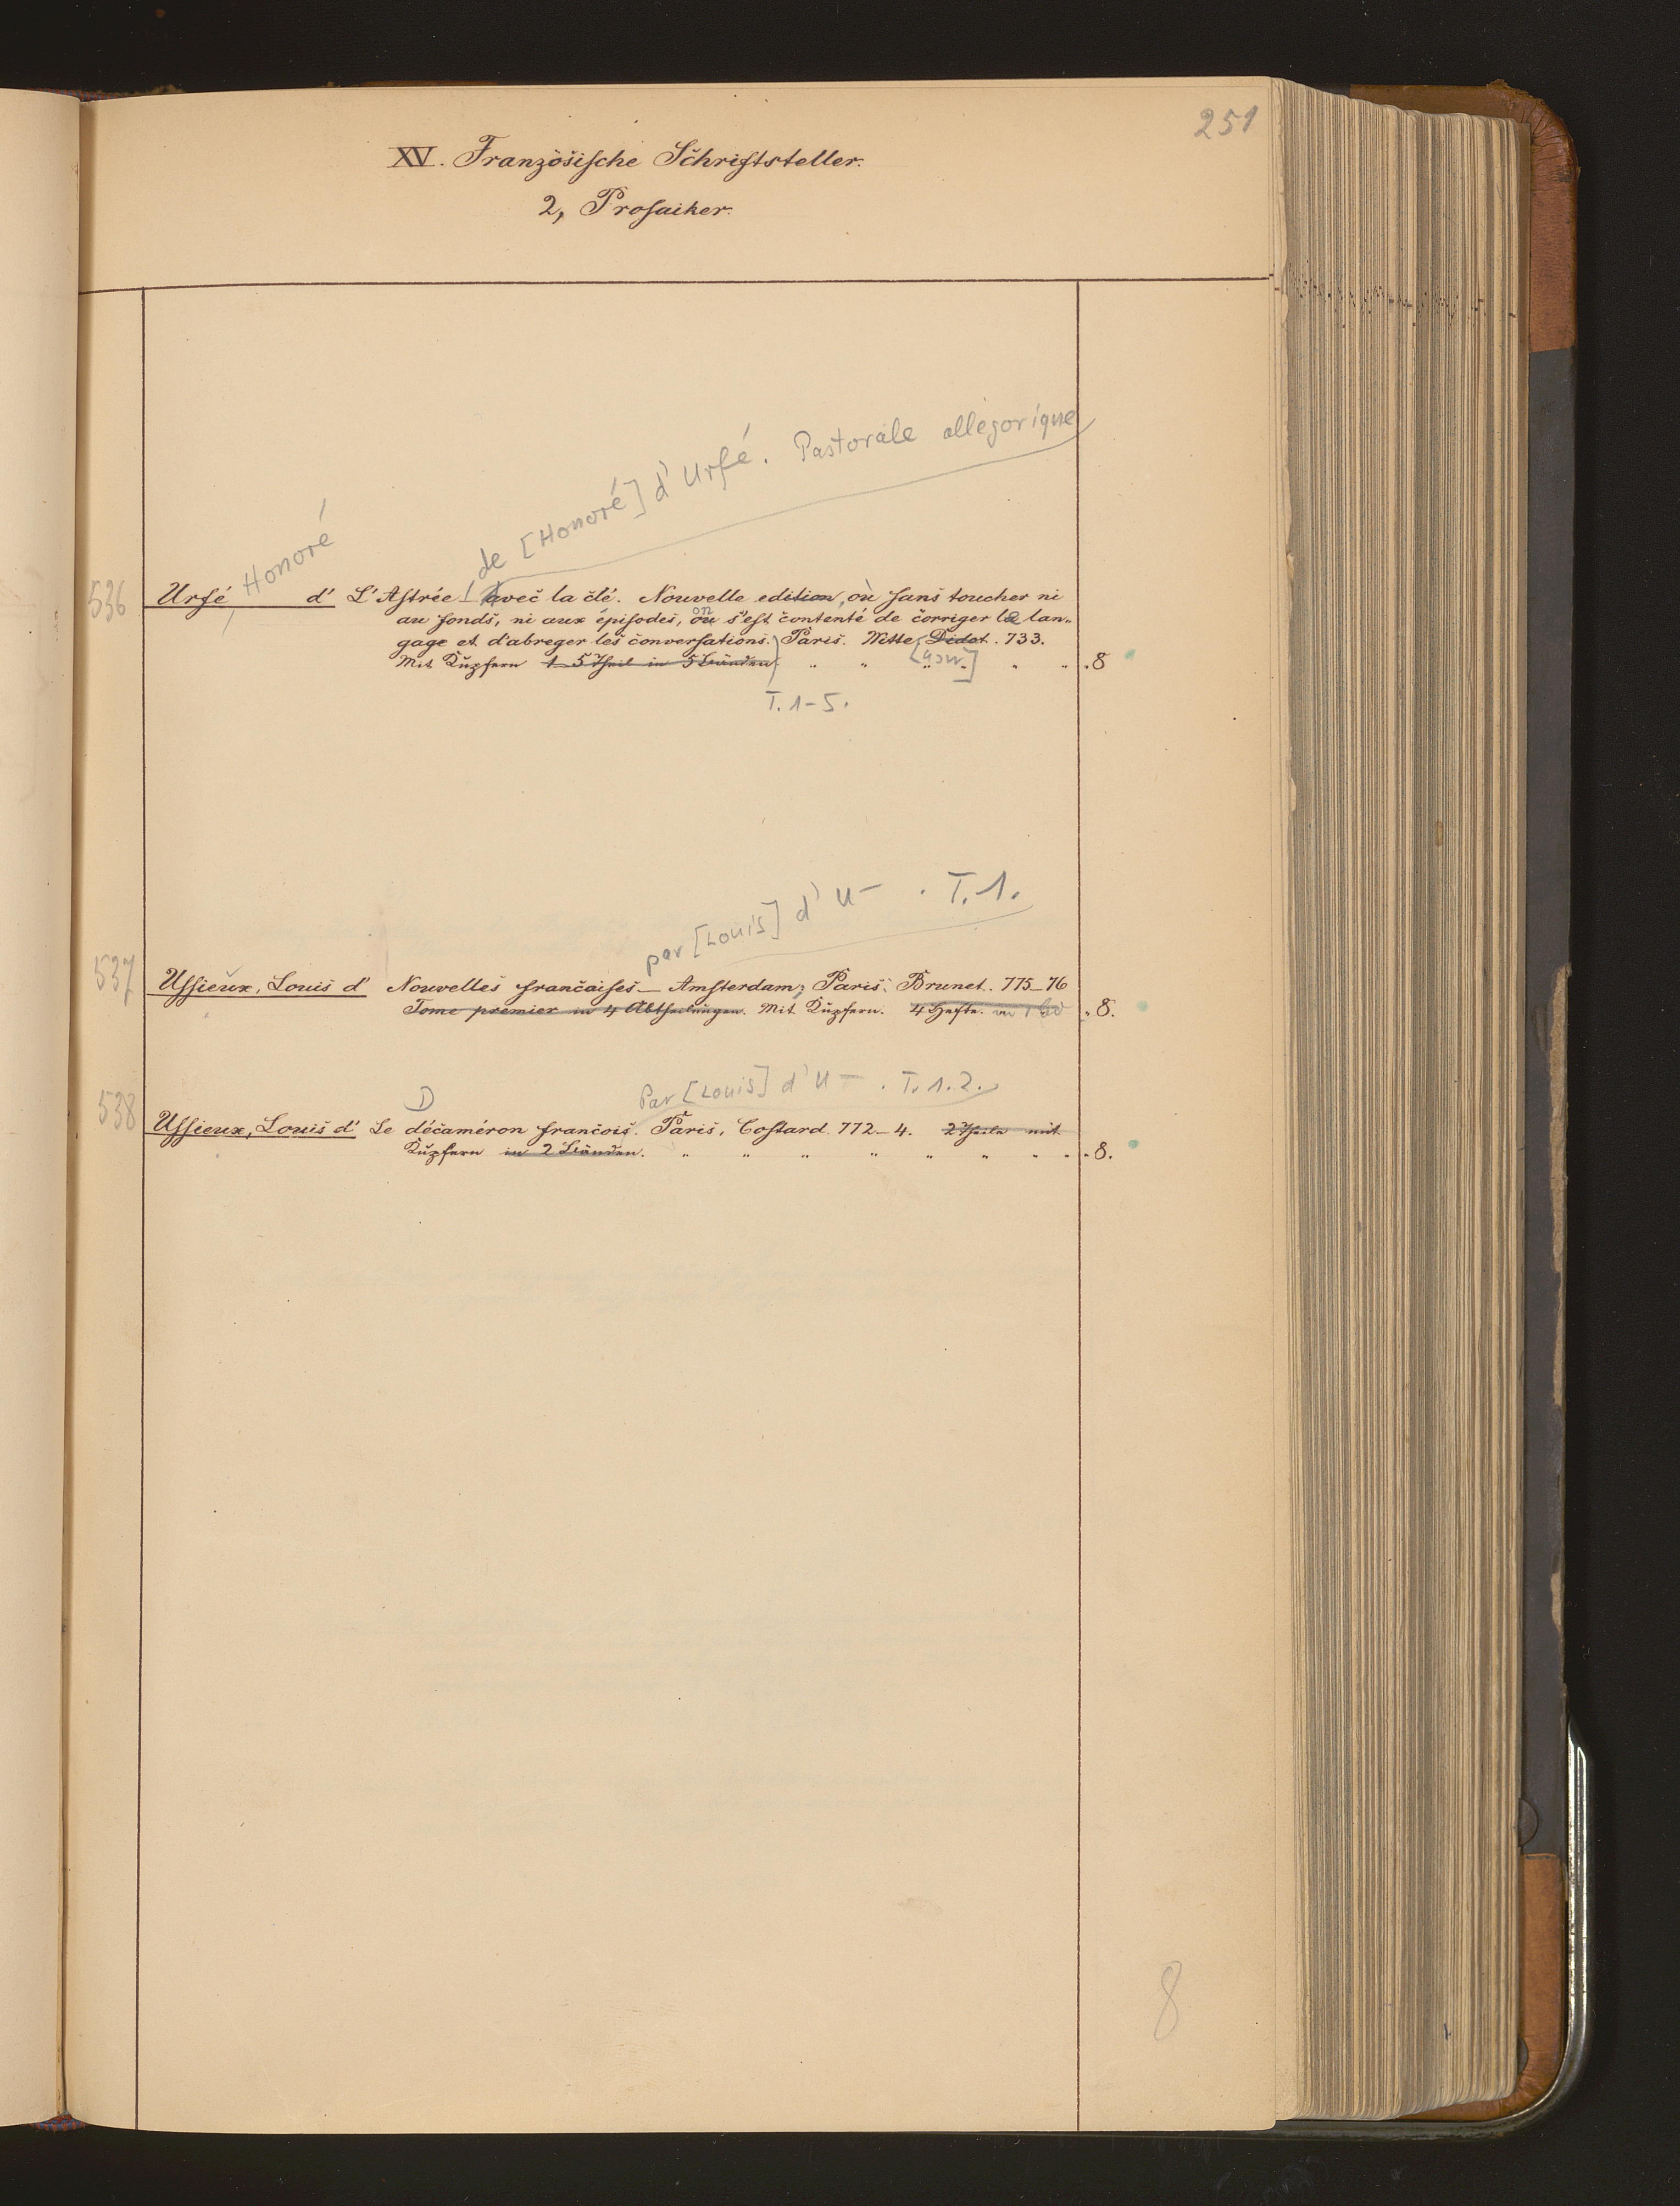 251
XV. Französische Schriftsteller.
2, Prosaiker.
de [Honoré] d'Urfé. Pastorale allégorique
Honoré
536 Urfé, d' L'Astrée avec la clé. Nouvelle edition, où sans toucher ni
au fonds, ni aux épisodes, on s'est contenté de corriger le lan-
gage et d'abreger les conversations. Paris. Witte, Didot. 733.
Mit Kupfern 1-5 Theil in 5 Bänden. " " " " " 8
T. 1-5.
par [Louis] d'U— . T. 1.
537 Ussieux, Louis d' Nouvelles françaises — Amsterdam; Paris, Brunet. 775-76
Tome premier in 4 Abtheilungen. Mit Kupfern. 4 Hefte. in 1 Bd " 8.
D Par [Louis] d'U— . T. 1.2.
538 Ussieux, Louis d' Le décaméron françois. Paris, Costard 772-4. 2 Theile mit
Kupfern in 2 Bänden. " " " " " " " " " 8.
8